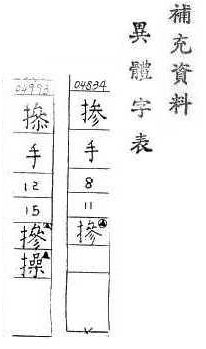 補充資料
異體字表
04834
掺
手
8
11
摻
04993
手
12
15
摻
操